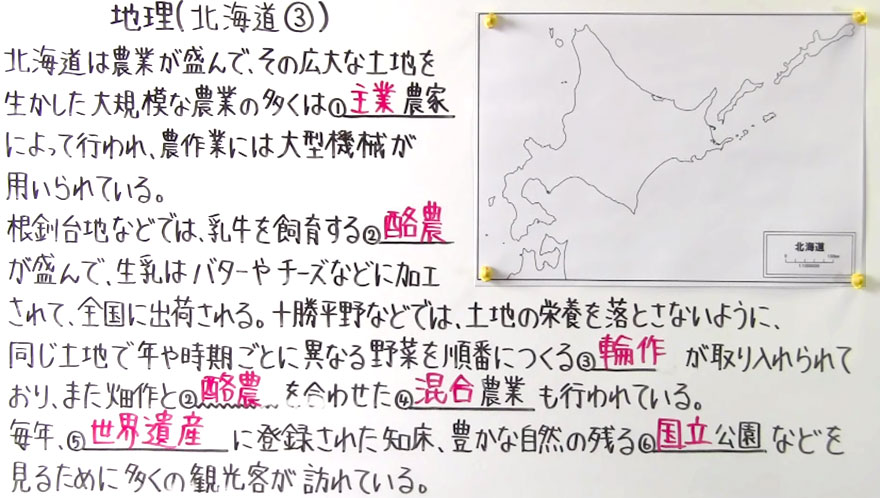 地理(北海道③)
北海道は農業が盛んで、その広大な土地を
生かした大規模な農業の多くは①主業農家
によって行われ、農作業には大型機械が
用いられている。
根釧台地などでは、乳牛を飼育する②酪農
が盛んで、生乳はバターやチーズなどに加工
されて、全国に出荷される。十勝平野などでは、土地の栄養を落とさないように、
同じ土地で年や時期ごとに異なる野菜を順番につくる③輪作が取り入れられて
おり、また畑作と②酪農を合わせた④混合農業も行われている。
毎年、⑤世界遺産に登録された知床、豊かな自然の残る⑥国立公園などを
見るために多くの観光客が訪れている。
北海道